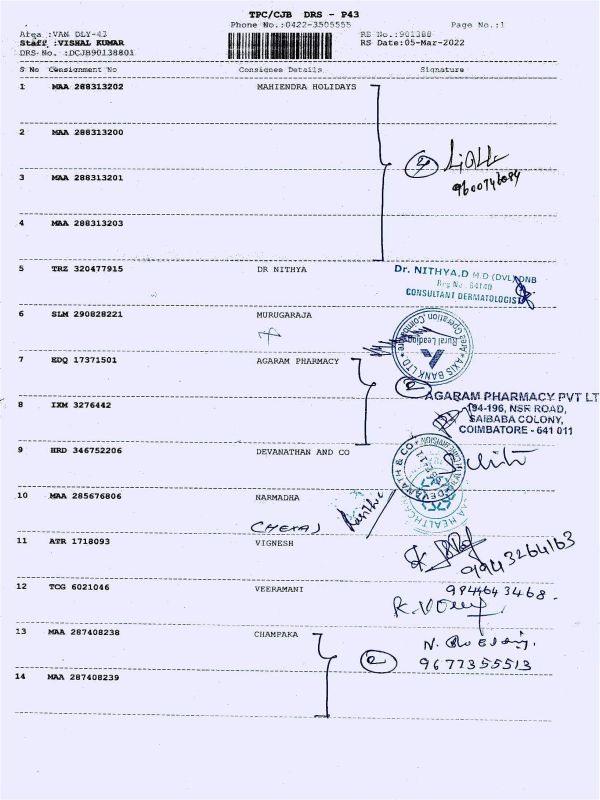 TPC/CJB DRS - P43
Phone No.:0422-3505555 Page No.:1
Area :VAN DLY-43 RS No.:901388
Staff :VISHAL KUMAR RS Date:05-Mar-2022
DRS No. :DCJB90138801
S No Consignment No Consignee Details Signature
1 MAA 288313202 MAHIENDRA HOLIDAYS
2 MAA 288313200
4
9600746084
3 MAA 288313201
4 MAA 288313203
5 TRZ 320477915 DR NITHYA
Dr. NITHYA.D M.D (DVL) DNB
Reg No. 64140
CONSULTANT DERMATOLOGIST
6 SLM 290828221 MURUGARAJA
AXIS BANK LTD
Rural Lending
7 EDQ 17371501 AGARAM PHARMACY
2
AGARAM PHARMACY PVT LT
194-196, NSR ROAD,
SAIBABA COLONY,
COIMBATORE - 641 011
8 IXM 3276442
9 HRD 346752206 DEVANATHAN AND CO
10 MAA 285676806 NARMADHA
11 ATR 1718093 VIGNESH
9943264163
12 TCG 6021046 VEERAMANI
9944643468.
13 MAA 287408238 CHAMPAKA
2
9677355513
14 MAA 287408239